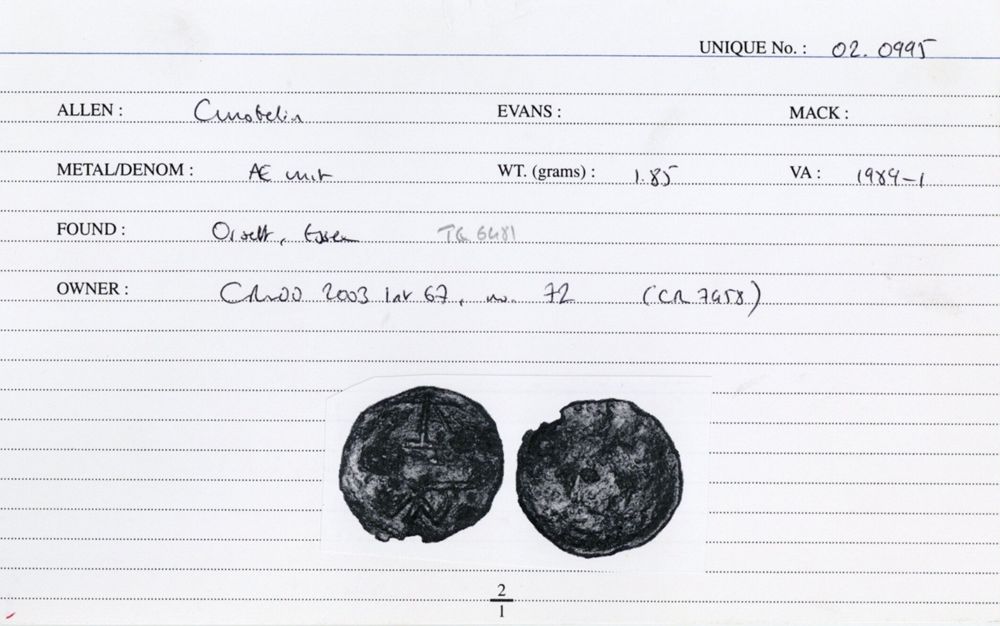 UNIQUE No. : 02.0995
ALLEN : Cunobelin EVANS : MACK :
METAL/DENOM : Æ unit WT. (grams) : 1.85 VA : 1989-1
FOUND : Orsett, Essex TQ 6481
OWNER : 2003 67, no. 72 (CR 7458)
2
1